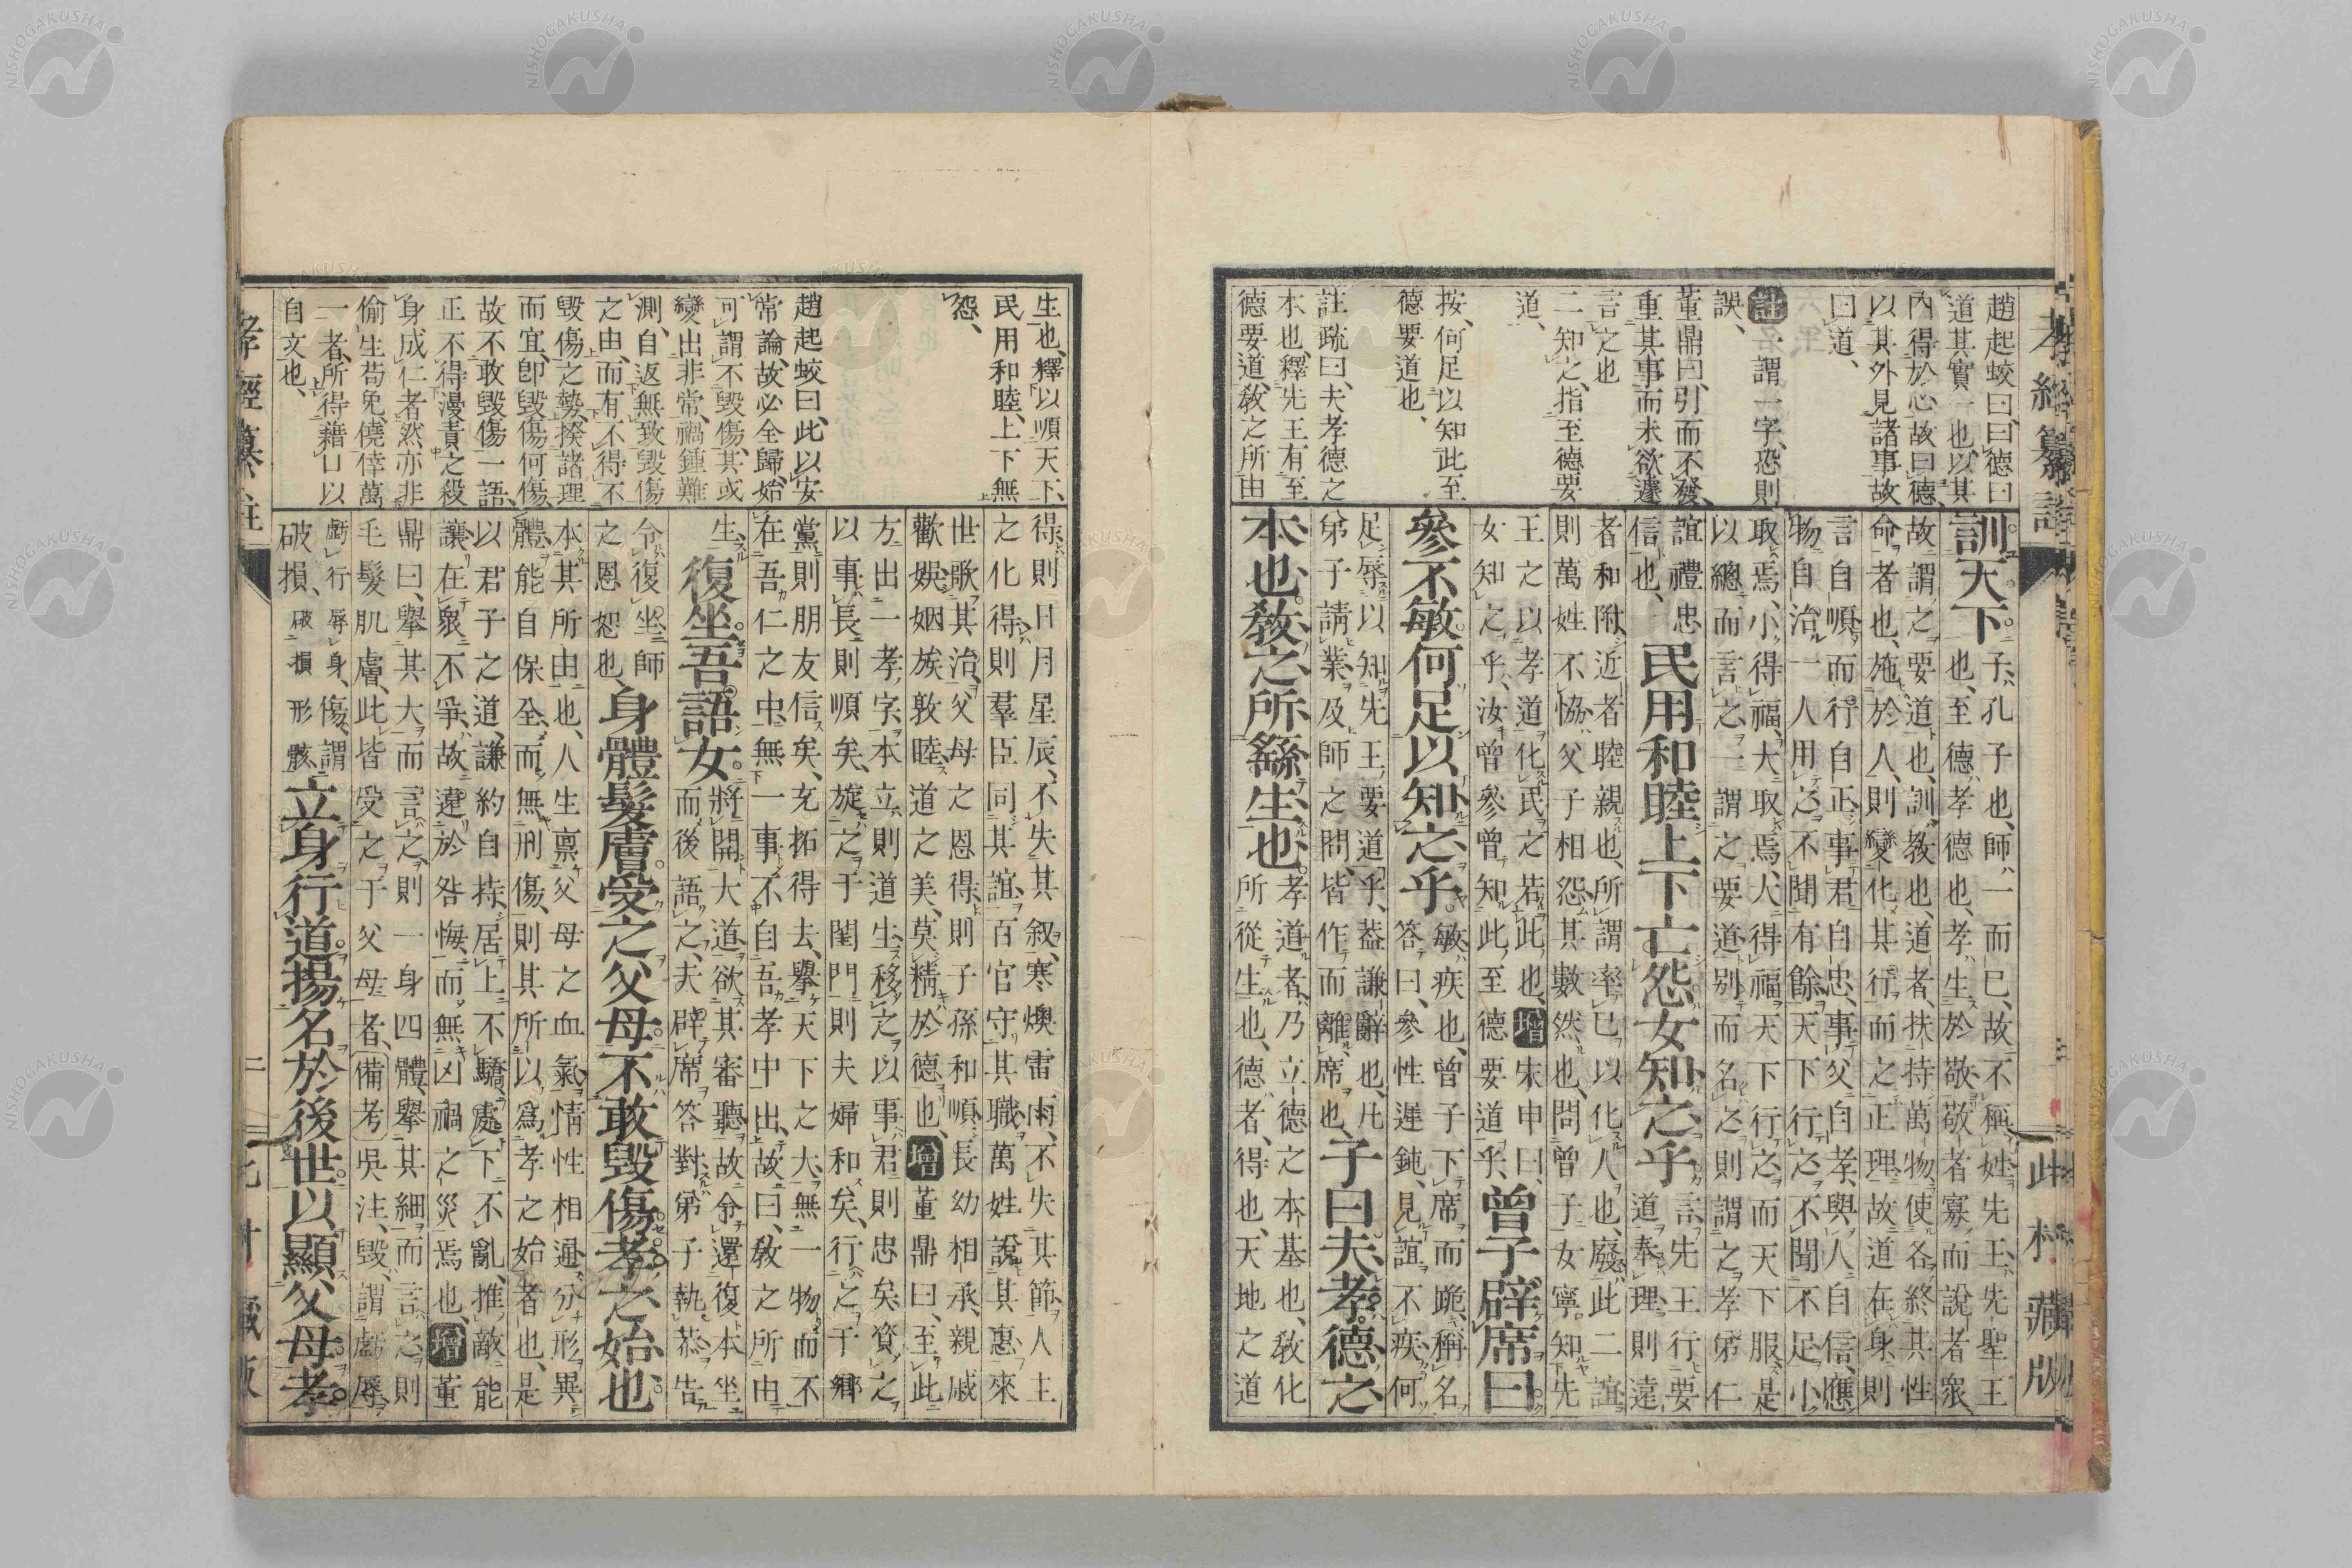 孝經纂註
此村藏版
趙起蛟曰、曰德曰
道其實一也、以其
內得於心、故曰德、
以其外見諸事、故
曰道、
註名謂一字、恐則
誤、
董鼎曰、引而不發、
重其事而未欲遽
言之也
二知之、指至德要
道、
按、何足以知此至
德要道也、
註疏曰、夫孝德之
本也、釋先王有至
德要道、敎之所由
訓天下。子孔子也、師一而已、故不稱姓先王、先聖王
也、至德孝德也、孝生於敬、敬者寡而說者衆、
故謂之要道也、訓教也、道者、扶持萬物、使各終其性
命者也、施於人、則變化其行、而之正理、故道在身、則
言自順、而行自正、事君自忠、事父自孝、與人自信、應
物自治、一人用之、不聞有餘、天下行之、不聞不足、小
取焉、小得福、大取焉、大得福、天下行之、而天下服、是
以總而言之、一謂之要道、別而名之、則謂之孝弟仁
誼禮忠
信也、
民用和睦上下亡怨女知之乎
言先王行要
道奉理、則遠
者和附、近者睦親也、所謂率己以化人也、廢此二誼
則萬姓不恊、父子相怨、其數然也、問曾子女寧知先
王之以孝道化民之若此也、增宋申曰、
女知之乎、汝曾參曾知此、至德要道乎、
曾子辟席曰
參不敏何足以知之乎。敏疾也、曾子下席而跪、稱名
答曰、參性遲鈍、見誼不疾、何
足辱以知先王要道乎、蓋謙辭也、凡
弟子請業、及師之問、皆作而離席也、
子曰夫孝德之
本也。敎之所繇生也。孝道者、乃立德之本基也、敎化
所從生也、德者、得也、天地之道
生也、釋以順天下、
民用和睦、上下無
怨、
趙起蛟曰、此以安
常論、故必全歸、始
可謂不毀傷、其或
變出非常、禍鍾難
測、自返無致毀傷
之由、而有不得不
毀傷之勢、揆諸理
而宜、卽毀傷何傷、
故不敢毀傷一語、
正不得漫責之殺
身成仁者、然亦非
偷生苟免、僥倖萬
一者、所得藉口以
自文也、
得、則日月星辰、不失其叙、寒燠雷雨、不失其節、人主
之化得、則羣臣同其誼、百官守其職、萬姓說其惠、來
世歌其治、父母之恩得、則子孫和順、長幼相承、親戚
歡娛、姻族敦睦、道之美、莫精於德也、增董鼎曰、至此
方出一孝字、本立則道生、移之以事君則忠矣、資之
以事長則順矣、旋之于閨門、則夫婦和矣、行之于鄕
黨、則朋友信矣、充拓得去、擧天下之大、無一物而不
在吾仁之中、無一事不自吾孝中出、故曰、敎之所由
生、
復坐吾語女。將開大道、欲其審聽、故令還復本坐
而後語之、夫辟席答對、弟子執恭、告
令復坐、師
之恩恕也、
身體髮膚受之父母不敢毀傷孝之始也
本其所由也、人生稟父母之血氣、情性相通、分形異
體、能自保全、而無刑傷、則其所以爲孝之始者也、是
以君子之道、謙約自持、居上不驕、處下不亂、推敵能
讓、在衆不爭、故遠於咎悔、而無凶禍之災焉也、增董
鼎曰、擧其大而言之、則一身四體、擧其細而言之、則
毛髮肌膚、此皆受之于父母者、備考吳注、毀、謂虧辱、
虧行辱身、傷、謂
破損、破損形骸
立身行道揚名於後世以顯父母孝
孝經纂註
二